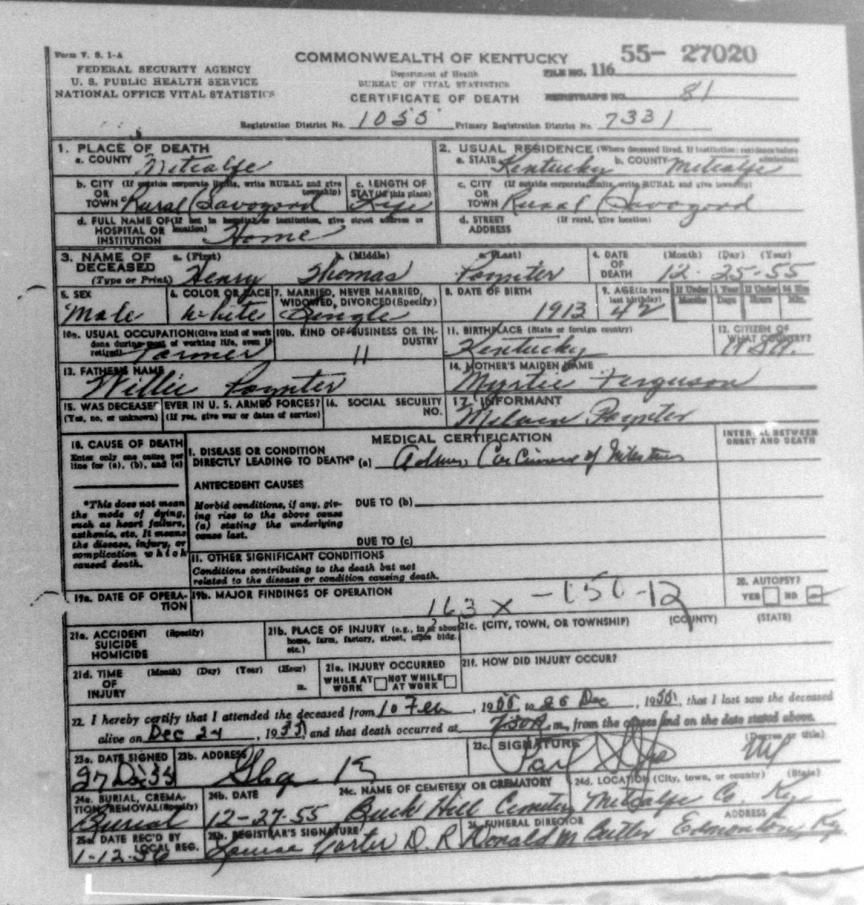 Form V. S. 1-A
FEDERAL SECURITY AGENCY
U. S. PUBLIC HEALTH SERVICE
NATIONAL OFFICE VITAL STATISTICS
COMMONWEALTH OF KENTUCKY
Department of Health
BUREAU OF VITAL STATISTICS
CERTIFICATE OF DEATH
55- 27020
FILE NO. 116
REGISTRAR'S NO. 81
Registration District No. 1055 Primary Registration District No. 7331
1. PLACE OF DEATH
a. COUNTY Metcalfe
2. USUAL RESIDENCE (Where deceased lived. If institution: residence before admission)
a. STATE Kentucky b. COUNTY Metcalfe
b. CITY (If outside corporate limits, write RURAL and give township) OR TOWN Rural Savoyard
c. LENGTH OF STAY (in this place) Life
c. CITY (If outside corporate limits, write RURAL and give township) OR TOWN Rural Savoyard
d. FULL NAME OF (If not in hospital or institution, give street address or location) HOSPITAL OR INSTITUTION Home
d. STREET ADDRESS (If rural, give location)
3. NAME OF DECEASED (Type or Print) a. (First) Henry b. (Middle) Thomas c. (Last) Poynter
4. DATE OF DEATH (Month) (Day) (Year) 12-25-55
5. SEX Male
6. COLOR OR RACE White
7. MARRIED, NEVER MARRIED, WIDOWED, DIVORCED (Specify) Single
8. DATE OF BIRTH 1913
9. AGE (In years last birthday) 42 If Under 1 Year Months Days If Under 24 Hrs Hours Min.
10a. USUAL OCCUPATION (Give kind of work done during most of working life, even if retired) Farmer
10b. KIND OF BUSINESS OR INDUSTRY "
11. BIRTHPLACE (State or foreign country) Kentucky
12. CITIZEN OF WHAT COUNTRY? USA.
13. FATHER'S NAME Willie Poynter
14. MOTHER'S MAIDEN NAME Myrtie Ferguson
15. WAS DECEASED EVER IN U. S. ARMED FORCES? (Yes, no, or unknown) (If yes, give war or dates of service)
16. SOCIAL SECURITY NO.
17. INFORMANT Melvin Poynter
18. CAUSE OF DEATH
Enter only one cause per line for (a), (b), and (c)
*This does not mean the mode of dying, such as heart failure, asthenia, etc. It means the disease, injury, or complication which caused death.
MEDICAL CERTIFICATION
INTERVAL BETWEEN ONSET AND DEATH
I. DISEASE OR CONDITION DIRECTLY LEADING TO DEATH* (a) Carcinoma of
ANTECEDENT CAUSES
Morbid conditions, if any, giving rise to the above cause (a) stating the underlying cause last.
DUE TO (b)
DUE TO (c)
II. OTHER SIGNIFICANT CONDITIONS
Conditions contributing to the death but not related to the disease or condition causing death.
19a. DATE OF OPERATION
19b. MAJOR FINDINGS OF OPERATION
163 X
20. AUTOPSY?
YES NO
21a. ACCIDENT SUICIDE HOMICIDE (Specify)
21b. PLACE OF INJURY (e.g., in or about home, farm, factory, street, office bldg. etc.)
21c. (CITY, TOWN, OR TOWNSHIP) (COUNTY) (STATE)
21d. TIME OF INJURY (Month) (Day) (Year) (Hour) m.
21e. INJURY OCCURRED
WHILE AT WORK NOT WHILE AT WORK
21f. HOW DID INJURY OCCUR?
22. I hereby certify that I attended the deceased from 10 Feb, 1955 to 25 Dec, 1955, that I last saw the deceased
alive on Dec 24, 1955, and that death occurred at m., from the causes and on the date stated above.
23a. DATE SIGNED 27 Dec 55
23b. ADDRESS
23c. SIGNATURE (Degree or title) MD
24a. BURIAL, CREMATION, REMOVAL (Specify) Burial
24b. DATE 12-27-55
24c. NAME OF CEMETERY OR CREMATORY Buck Hill Cemetery
24d. LOCATION (City, town, or county) (State) Metcalfe Co. Ky
25a. DATE REC'D BY LOCAL REG. 1-12-56
25b. REGISTRAR'S SIGNATURE Louise Carter D. R.
26. FUNERAL DIRECTOR ADDRESS Donald M Butler Edmonton, Ky